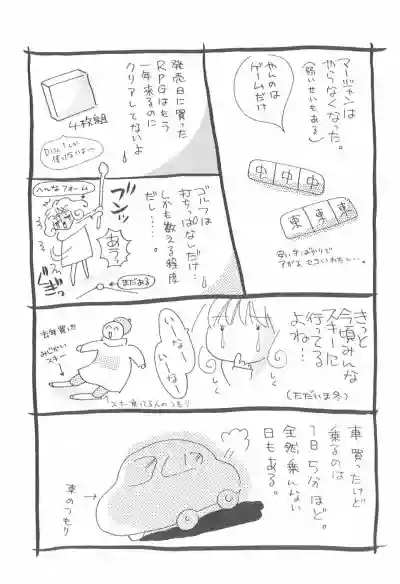 マージャンは
やらなくなった。
(弱いせいもある)
やんのは
ゲームだけ
中
中
中
東
東
東
安い手ばかりで
アガる セコいわたし…。
発売日に買った
RPGはもう
一年来るのに
クリアしてないよ
4枚組
Disc1しか
使ってないよ〜
ゴルフは
打ちっぱなしだけ…
しかも数える程度
だし………。
へんなフォーム
ブンッ
あうっ
まだある
きっと
今頃みんな
スキーに
行ってる
よね…
(ただいま冬)
いーなー
いーなー
しく
しく
去年買った
みじかい
スキー
↑スキー乗ってる人のつもり
車買ったけど
乗るのは
1日5分ほど。
全然乗んない
日もある。
車のつもり